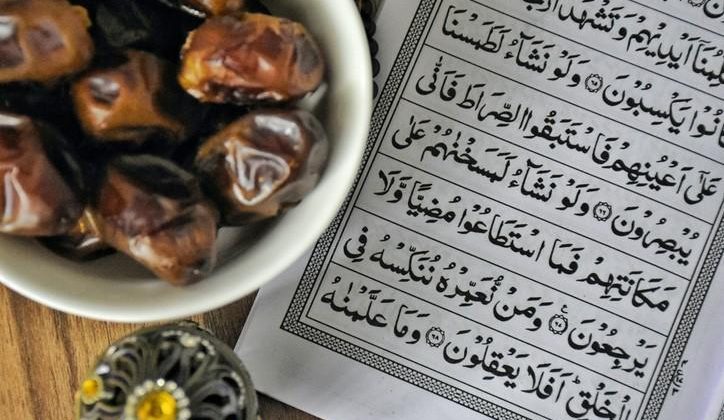 اَيْدِيْهِمْ وَتَشْهَدُ
يَكْسِبُوْنَ ۝٦٥ وَلَوْ نَشَآءُ لَطَمَسْنَا
عَلٰۤى اَعْيُنِهِمْ فَاسْتَبَقُوا الصِّرَاطَ فَاَنّٰى
يُبْصِرُوْنَ ۝٦٦ وَلَوْ نَشَآءُ لَمَسَخْنٰهُمْ عَلٰى
مَكَانَتِهِمْ فَمَا اسْتَطَاعُوْا مُضِيًّا وَّلَا
يَرْجِعُوْنَ ۝٦٧ وَمَنْ نُّعَمِّرْهُ نُنَكِّسْهُ فِى
الْخَلْقِ اَفَلَا يَعْقِلُوْنَ ۝٦٨ وَمَا عَلَّمْنٰهُ